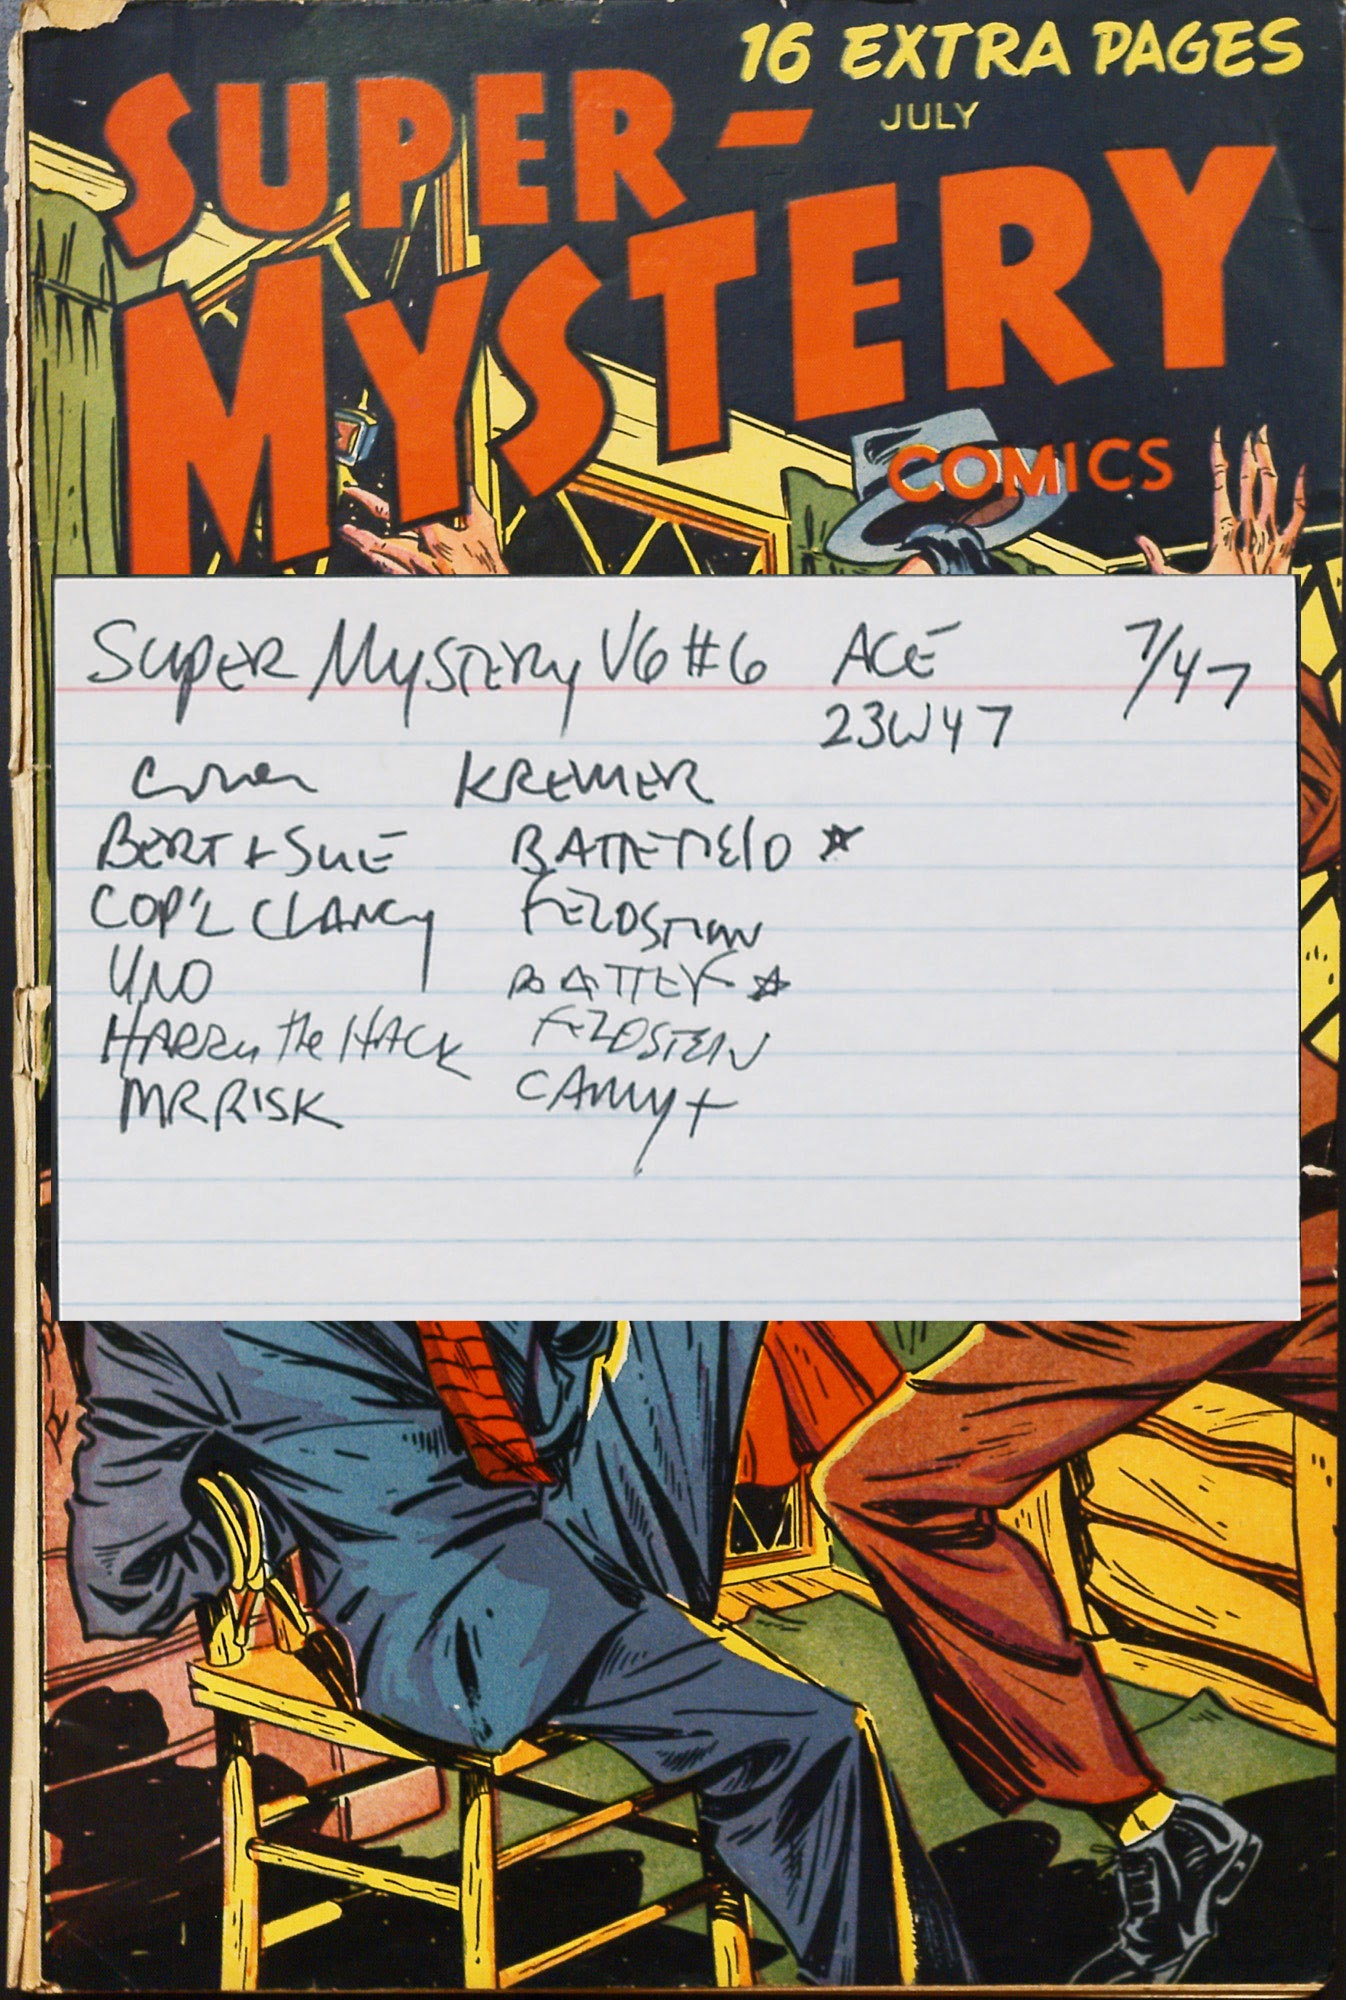 16 EXTRA PAGES
JULY
SUPER-
MYSTERY
COMICS
SUPER MYSTERY V6 #6 ACE 7/47
23W47
COVER KREMER
BERT + SUE BATTEFIELD ☆
COP'L CLANCY FELDSTEIN
UNO BATTEF ☆
HARRY the HACK FELDSTEIN
MR RISK CAMY+